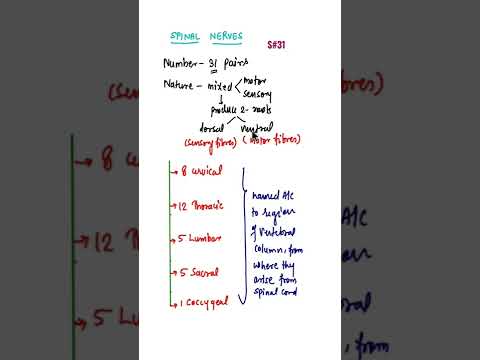 SPINAL NERVES
S#31
Number - 31 pairs
Nature - mixed < motor
sensory
produce 2- roots
dorsal ventral
(sensory fibres) (motor fibres)
→ 8 cervical
→ 12 Thoracic
→ 5 Lumbar
→ 5 Sacral
→ 1 Coccygeal
named A/C
to region
of vertebral
column, from
where thy
arise from
spinal cord